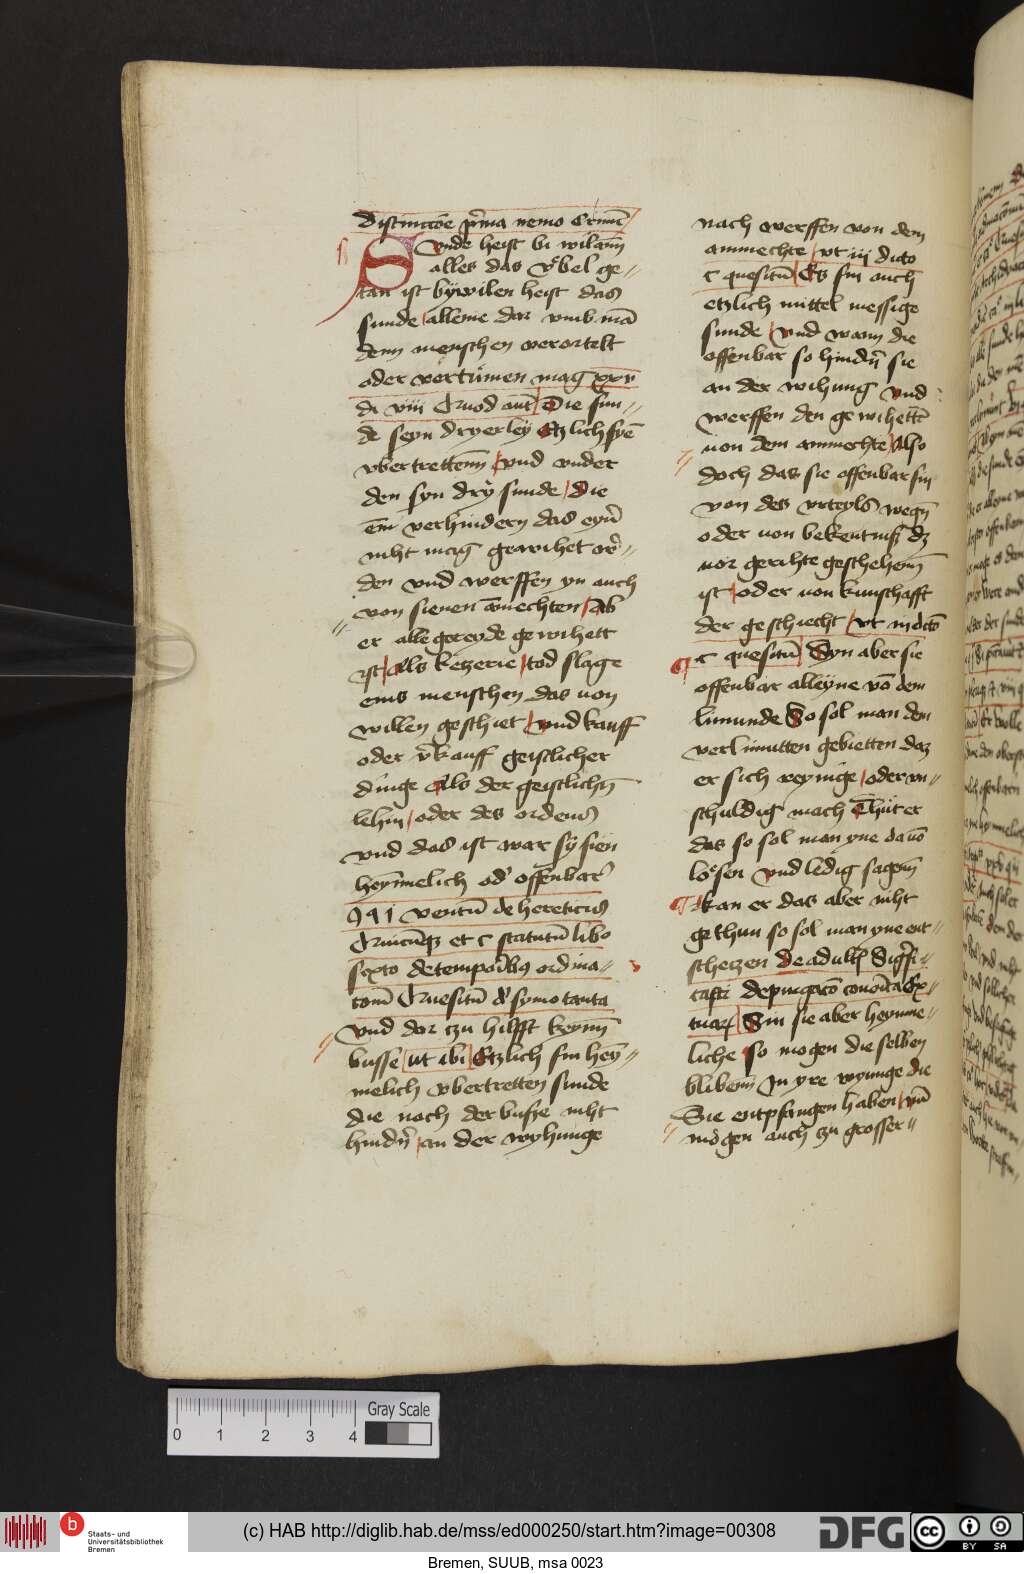 distinctōe p̄ma nemo Crimīe
Sunde heist bi wilanń
alles das vͤbel ge〃
tan ist bÿwilen heist das
sunde alleine dar vmb mā
denn menschen verortelt
oder vertùmen mag xxv
di viii Quod aut̄ Die sun〃
de seyn dryerleÿ Etzlich syē
vbertrettenn vnd vnder
den syn drÿ sunde die
verhindern das eyn̄
niht mag gewihet w̄〃
den vnd werffen yn auch
von sienen āmechten Als
er alle gereyde gewihett
ist Als ketzerie tod slage
eins menschen das von
willen geschiet vnd kauff
oder v̄kauff geistlicher
dinge Als der geistlichn̄
lehin oder des ordens
vnd das ist war sÿ sien
heym̄elich od' offenbar
ventū de hereticis
Quicūqz et c statutū libo
sexto de temporibꝰ ordina〃
tom̄ Quesitū d' symo tanta
Vnd dar czu hilfft keynn̄
busse ut ibi Etzlich sin heÿ〃
melich vbertretten sunde
die noch der busze niht
hindn̄ an der wyhunge
nach werffen von dem
ammechte vt iii dicto
c quesitū Es sin auch
etzlich mittel messige
sunde vnd wann die
offenbar so hindn̄ sie
an der wihung vnd
werffen den gewihettē
von dem ammechte Also
doch das sie offenbar sin
von des vrteyls wegn̄
oder von bekentnisz dz
vor gerihte geschehenn̄
ist oder von kunschafft
der geschiecht vt in dictō
c quesitū Syn aber sie
offenbar alleyne vō dem
limunde So sol man dem
verlimutten gebietten daz
er sich reynige oder vn〃
schuldig mach Thùt er
das so sol man yne da vō
loͤsen vnd ledig sagenn̄
kan er das aber niht
gethun so sol man yne ent〃
scheczen De adult̄
de purgatō canonīca Ex〃
Sin sie aber heyme〃
liche so mogen die selben
blibenn̄ In yre wyunge die
Sie entpfangen haben vn̄
mògen auch zu grosser〃
0 1 2 3 4
Gray Scale
b
Staats- und
Universitätsbibliothek
Bremen
(c) HAB http://diglib.hab.de/mss/ed000250/start.htm?image=00308
DFG
cc
BY SA
Bremen, SUUB, msa 0023